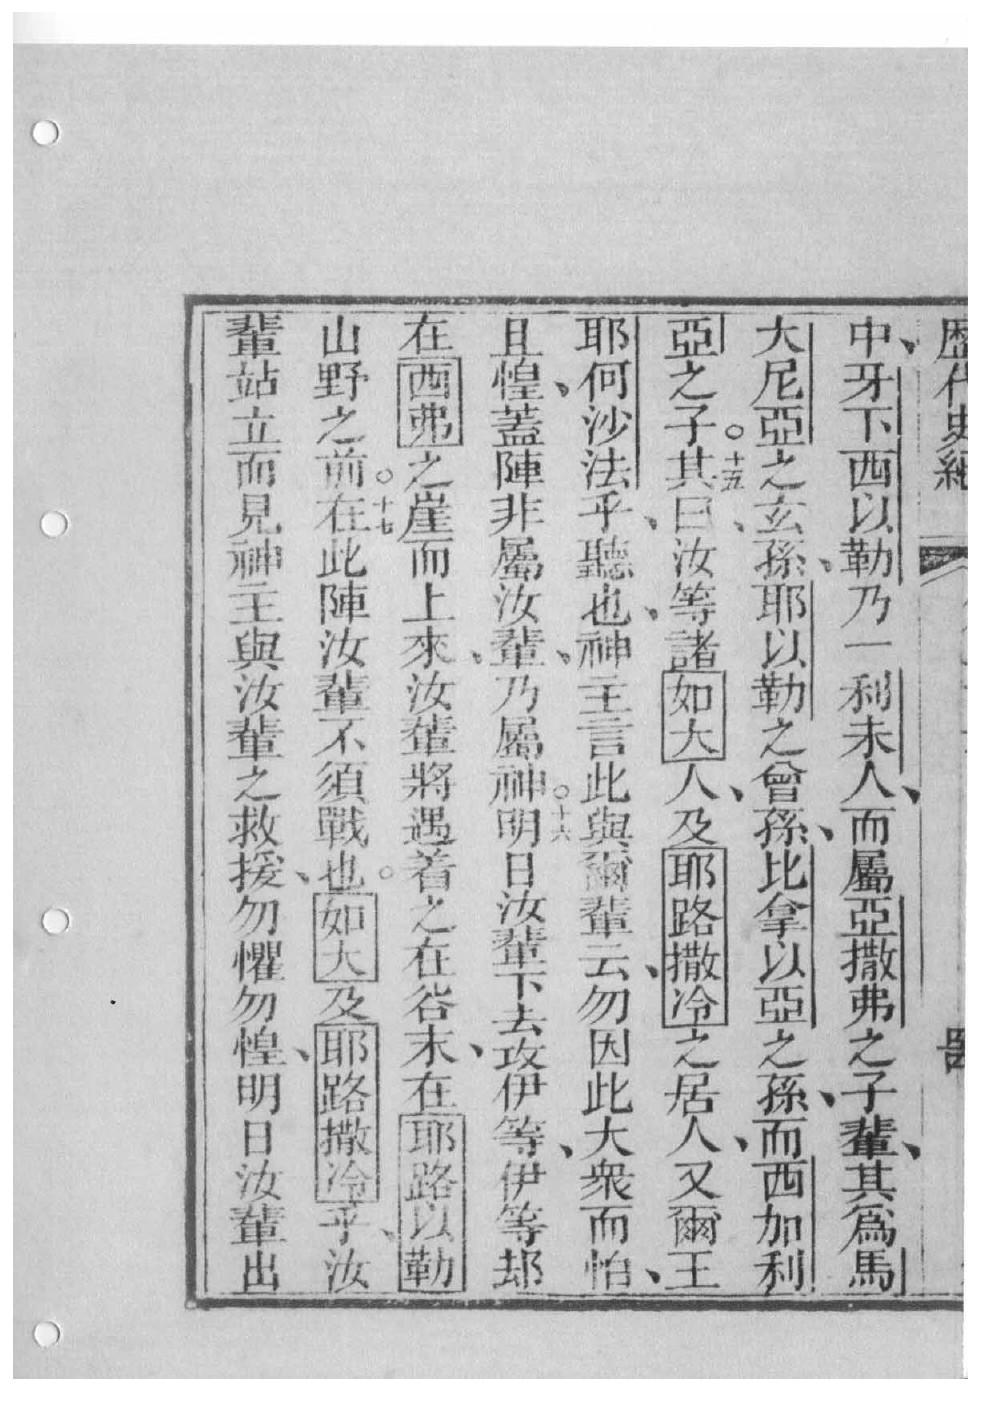 歷代史紀
中、牙下西以勒乃一利未人、而屬亞撒弗之子輩、其爲馬
大尼亞之玄孫、耶以勒之曾孫、比拿以亞之孫、而西加利
亞之子。十五其曰、汝等諸如大人、及耶路撒冷之居人、又爾王
耶何沙法乎、聽也、神主言此與爾輩云、勿因此大衆而怕、
且惶、蓋陣非屬汝輩、乃屬神。十六明日汝輩下去攻伊等、伊等却
在西弗之崖而上來、汝輩將遇着之在谷末、在耶路以勒
山野之前。十七在此陣汝輩不須戰也。如大及耶路撒冷乎、汝
輩站立而見神主與汝輩之救援、勿懼勿惶、明日汝輩出